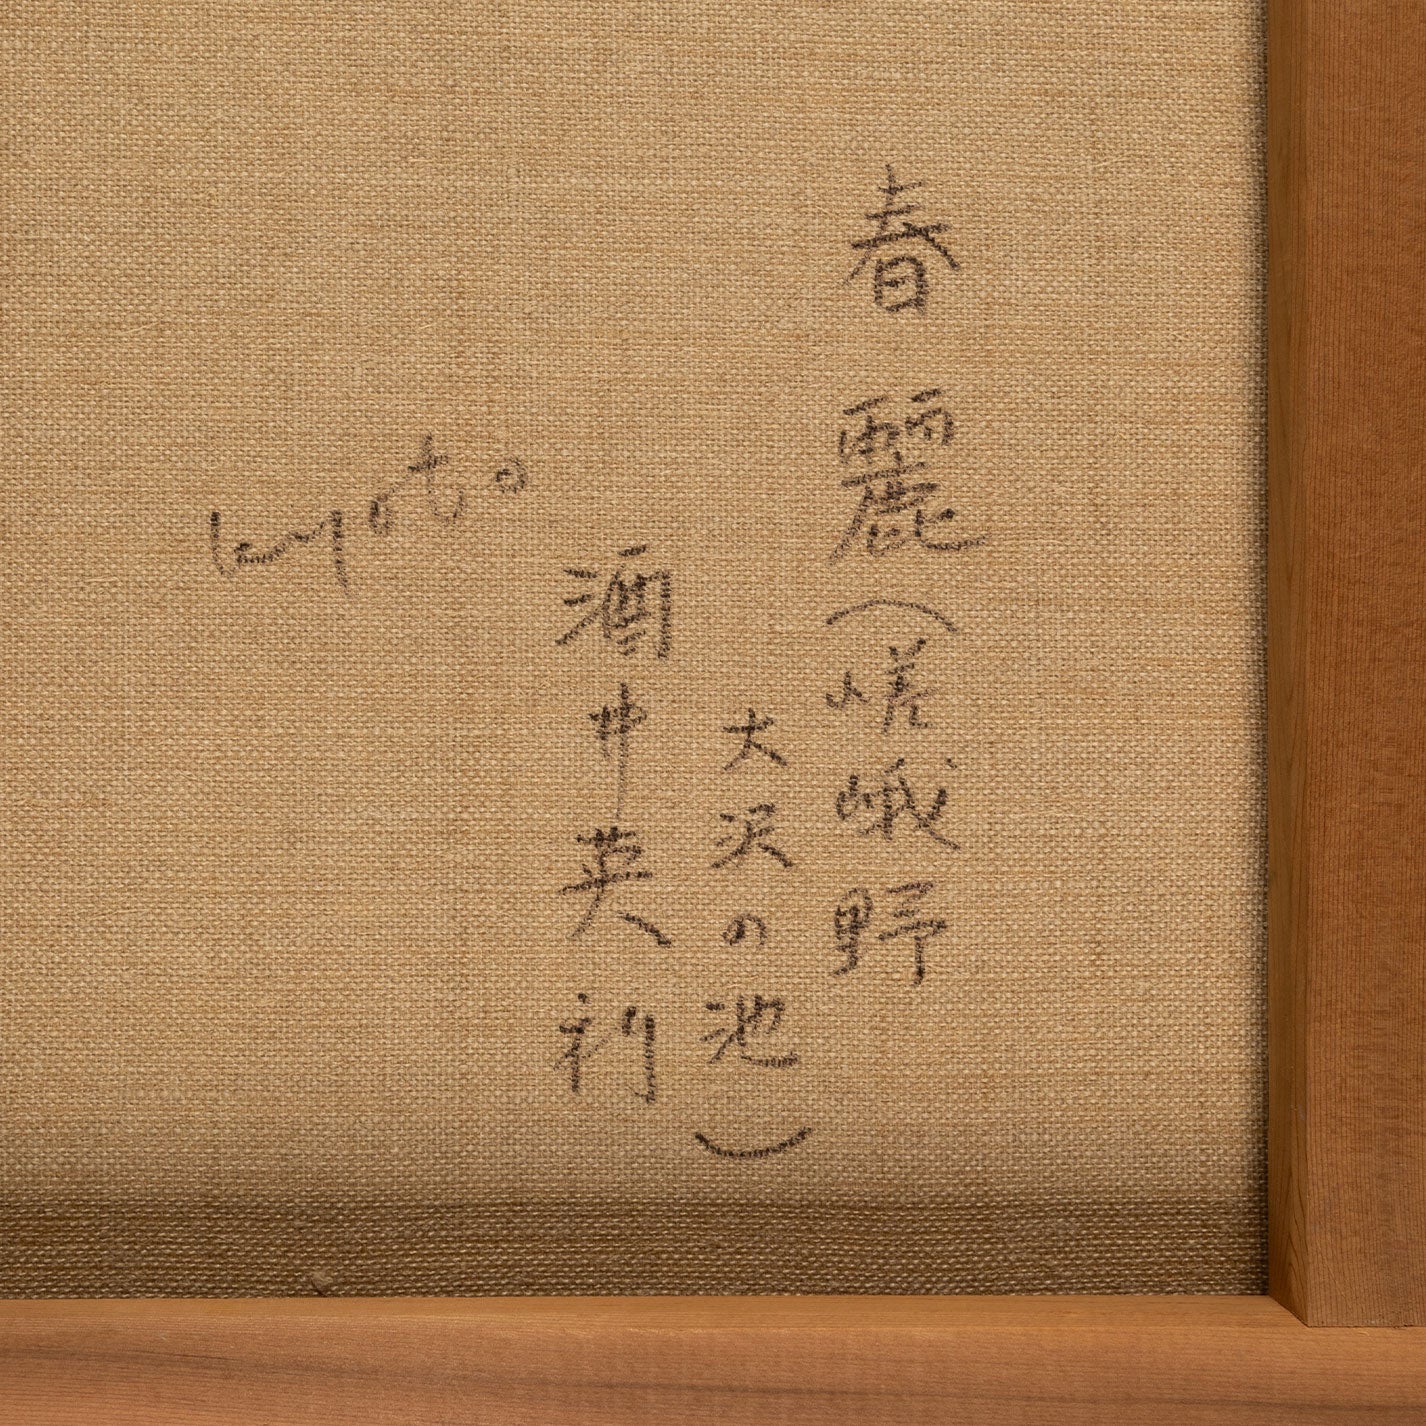 春麗(嵯峨野
大沢の池)
酒井英利
kyoto